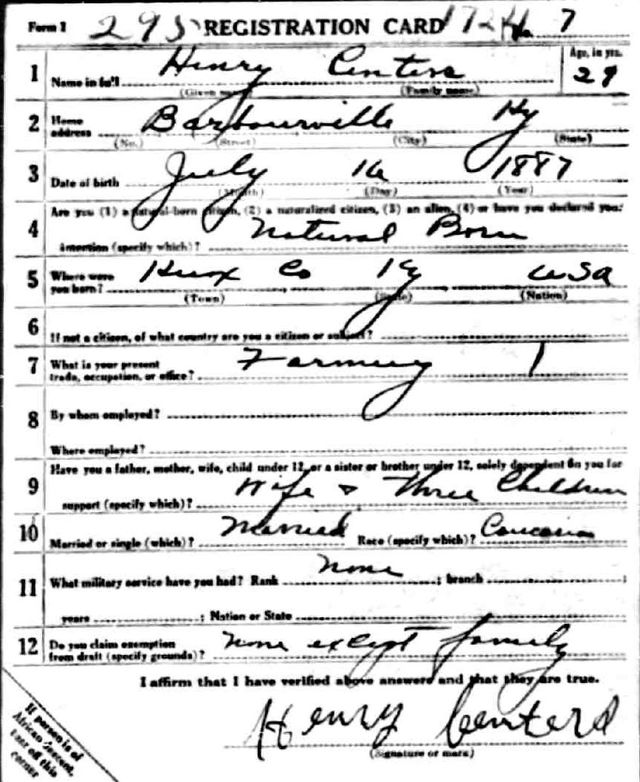 Form 1 295 REGISTRATION CARD 1724 No. 7
1 Name in full Henry Centers Age, in yrs. 29
(Given name) (Family name)
2 Home address Barbourville Ky
(No.) (Street) (City) (State)
3 Date of birth July 16 1887
(Month) (Day) (Year)
4 Are you (1) a natural-born citizen, (2) a naturalized citizen, (3) an alien, (4) or have you declared your
intention (specify which)? Natural Born
5 Where were you born? Knox Co Ky USA
(Town) (State) (Nation)
6 If not a citizen, of what country are you a citizen or subject?
7 What is your present trade, occupation, or office? Farming 1
8 By whom employed?
Where employed?
9 Have you a father, mother, wife, child under 12, or a sister or brother under 12, solely dependent on you for
support (specify which)? Wife & Three Children
10 Married or single (which)? Married Race (specify which)? Caucasian
11 What military service have you had? Rank None ; branch
years ; Nation or State
12 Do you claim exemption from draft (specify grounds)? None except family
I affirm that I have verified above answers and that they are true.
Henry Centers
(Signature or mark)
If person is of
African descent,
tear off this
corner